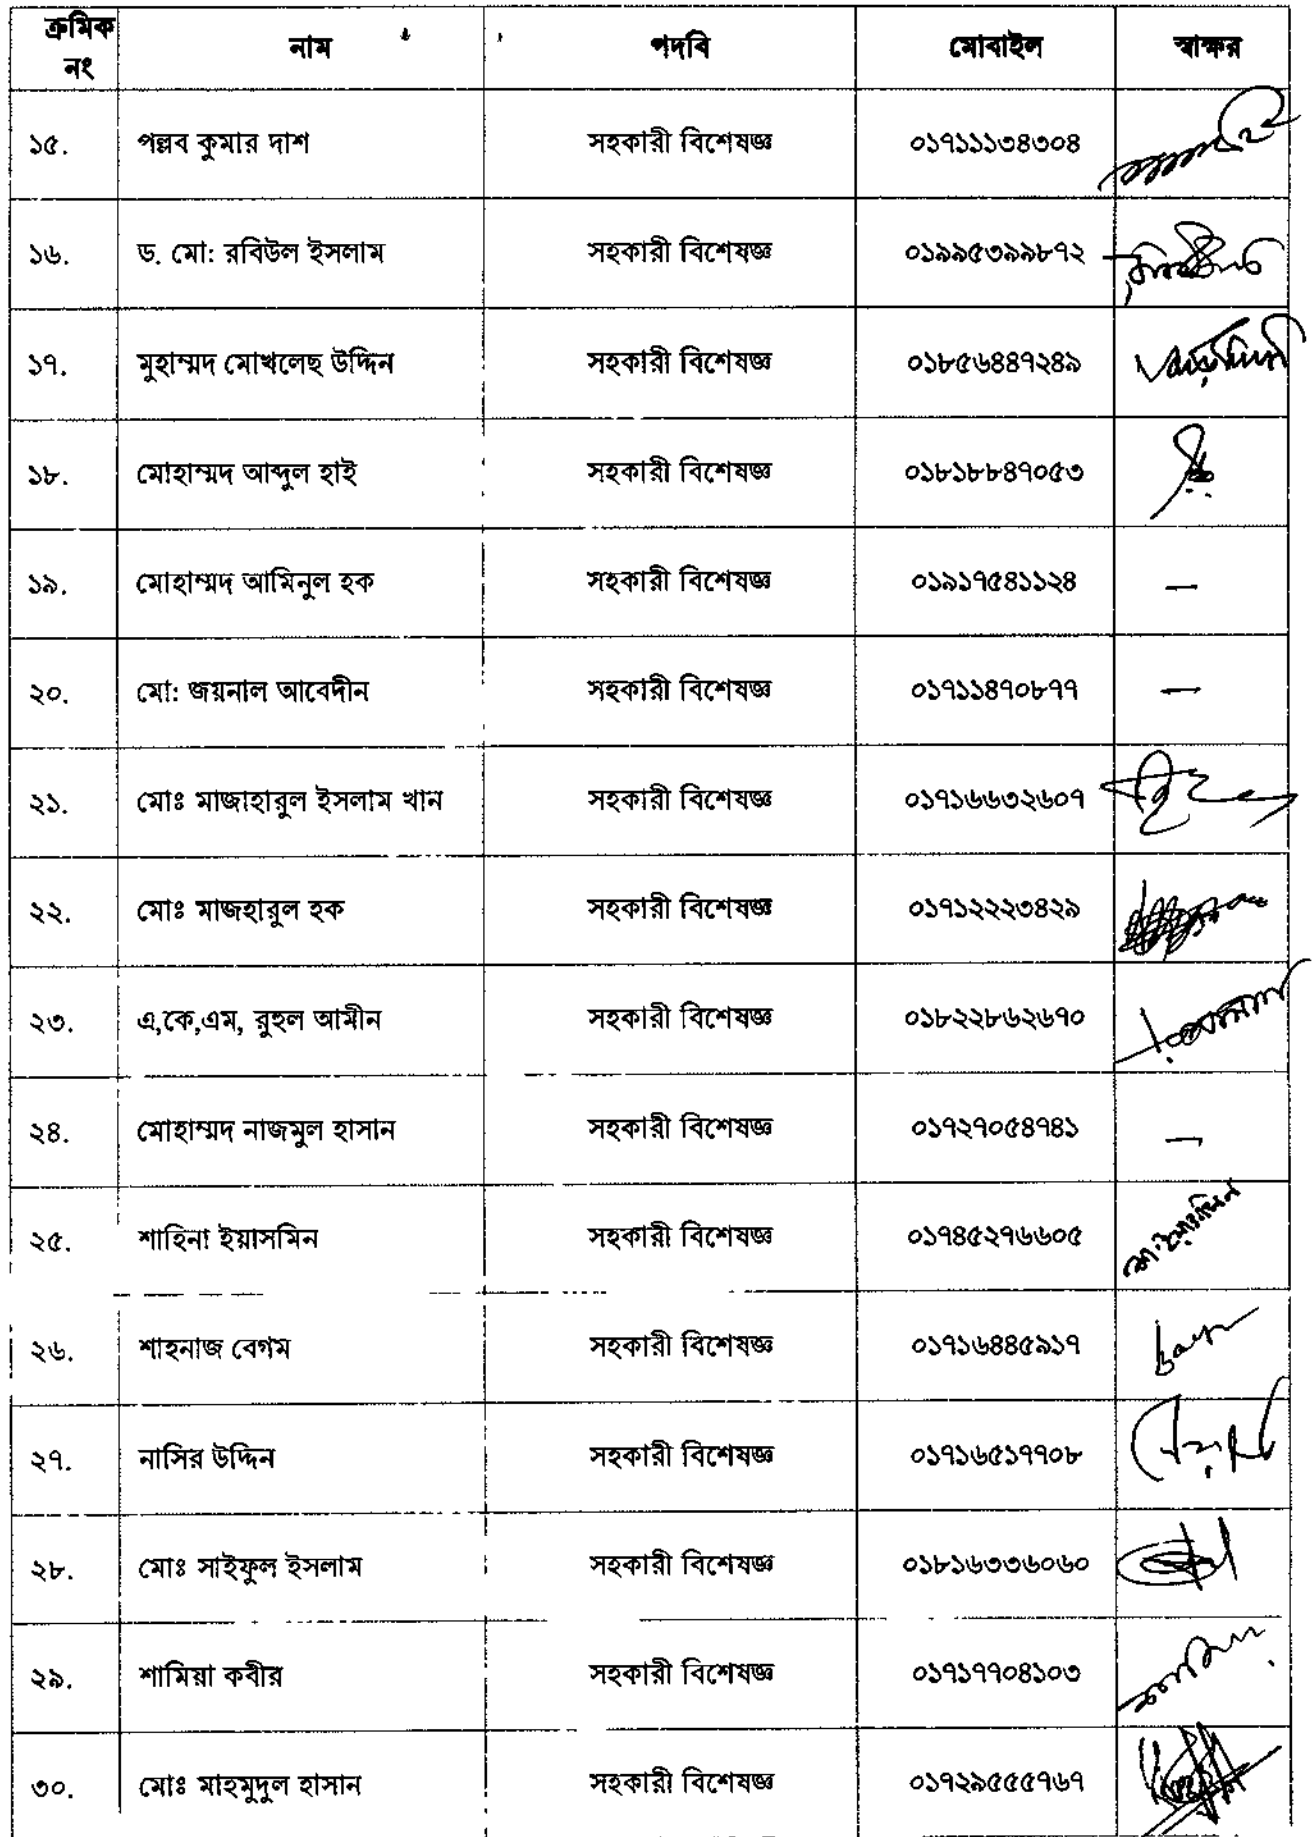 ক্রমিক নং নাম পদবি মোবাইল স্বাক্ষর
১৫. পল্লব কুমার দাশ সহকারী বিশেষজ্ঞ ০১৭১১১৩৪৩০৪
১৬. ড. মো: রবিউল ইসলাম সহকারী বিশেষজ্ঞ ০১৯৯৫৩৯৯৮৭২
১৭. মুহাম্মদ মোখলেছ উদ্দিন সহকারী বিশেষজ্ঞ ০১৮৫৬৪৪৭২৪৯
১৮. মোহাম্মদ আব্দুল হাই সহকারী বিশেষজ্ঞ ০১৮১৮৮৪৭০৫৩
১৯. মোহাম্মদ আমিনুল হক সহকারী বিশেষজ্ঞ ০১৯১৭৫৪১১২৪ —
২০. মো: জয়নাল আবেদীন সহকারী বিশেষজ্ঞ ০১৭১১৪৭০৮৭৭ —
২১. মোঃ মাজাহারুল ইসলাম খান সহকারী বিশেষজ্ঞ ০১৭১৬৬৩২৬০৭
২২. মোঃ মাজহারুল হক সহকারী বিশেষজ্ঞ ০১৭১২২২৩৪২৯
২৩. এ,কে,এম, রুহুল আমীন সহকারী বিশেষজ্ঞ ০১৮২২৮৬২৬৭০
২৪. মোহাম্মদ নাজমুল হাসান সহকারী বিশেষজ্ঞ ০১৭২৭০৫৪৭৪১ —
২৫. শাহিনা ইয়াসমিন সহকারী বিশেষজ্ঞ ০১৭৪৫২৭৬৬০৫
২৬. শাহনাজ বেগম সহকারী বিশেষজ্ঞ ০১৭১৬৪৪৫৯১৭
২৭. নাসির উদ্দিন সহকারী বিশেষজ্ঞ ০১৭১৬৫১৭৭০৮
২৮. মোঃ সাইফুল ইসলাম সহকারী বিশেষজ্ঞ ০১৮১৬৩৩৬০৬০
২৯. শামিয়া কবীর সহকারী বিশেষজ্ঞ ০১৭১৭৭০৪১০৩
৩০. মোঃ মাহমুদুল হাসান সহকারী বিশেষজ্ঞ ০১৭২৯৫৫৫৭৬৭